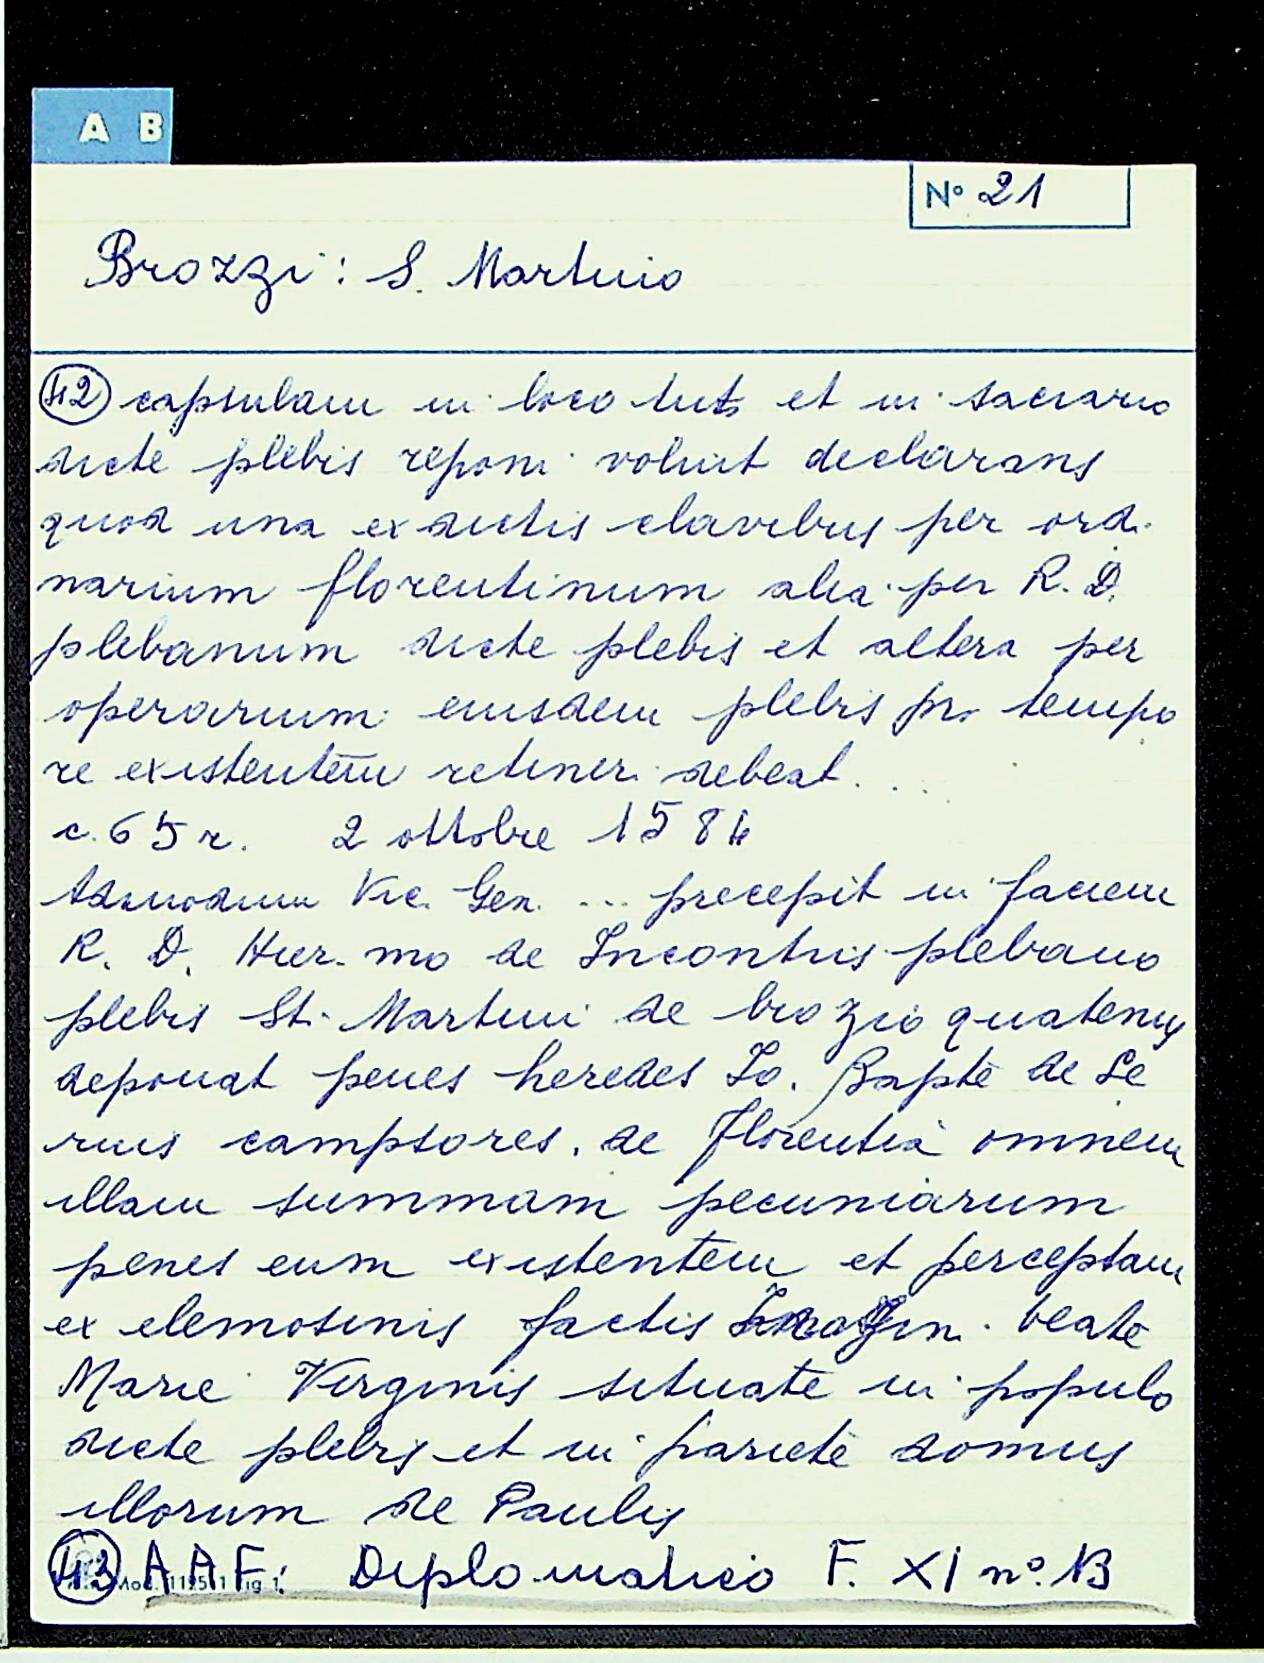 A B
Nº 21
Brozzi: S. Martino
42 capsulam in loco tuto et in sacrario
dicte plebis reponi voluit declarans
quod una ex dictis clavibus per ordi
narium florentinum alia per R. D.
plebanum dicte plebis et altera per
operarium eiusdem plebis pro tempo
re existentem retineri debeat....
c. 65 r. 2 ottobre 1584
Admodum Vic. Gen. ... precepit in faciem
R. D. Hier.mo de Incontris plebano
plebis St. Martini de brozio quatenus
deponat penes heredes Io. Bapte de Se
rnis campsores de Florentia omnem
illam summam pecuniarum
penes eum existentem et perceptam
ex elemosinis factis beate
Marie Virginis situate in populo
dicte plebis et in pariete domus
illorum de Paulis
43 A A F: Diplomatico F. XI nº. 13